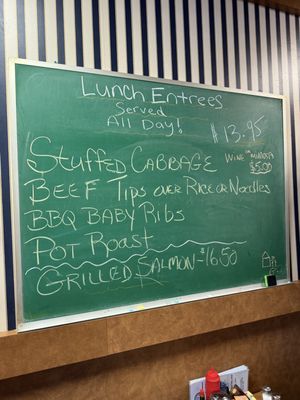 Lunch Entrees
Served
All Day!
$13.95
Stuffed Cabbage
Wine
$5.00
Beef Tips over Rice or Noodles
BBQ Baby Ribs
Pot Roast
Grilled Salmon - $16.50